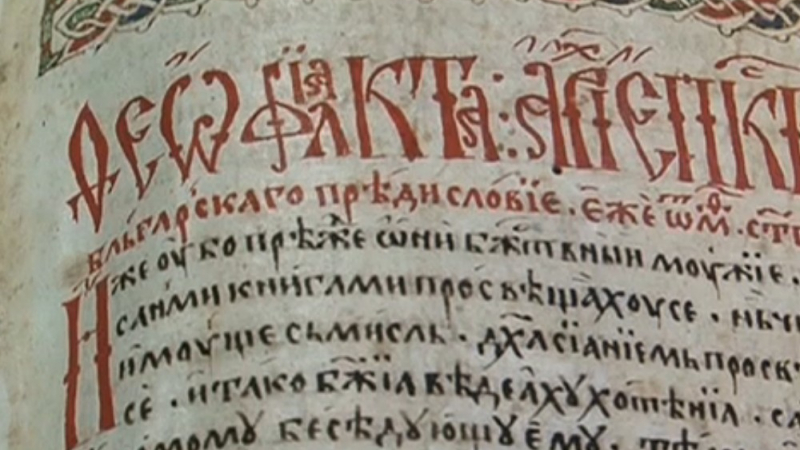 Ѳеѡфѷлакта: а҆рх҃їепⷭ҇к
бльгарскаго прѣдисловїе. є҆же ѿ м. ст҃
Иже оубо прѣжⷣе ѡни бж҃тъвнын моужїе.
самѝми книгами просвѣщахоусе. нь чи
и҆моуще сьмисль. дх҃а сїанїемь просв
се. и҆ тако бж҃їа вѣдѣахꙋ хотѣнїа. са
момꙋ бесѣдꙋющꙋ є҆мꙋ.